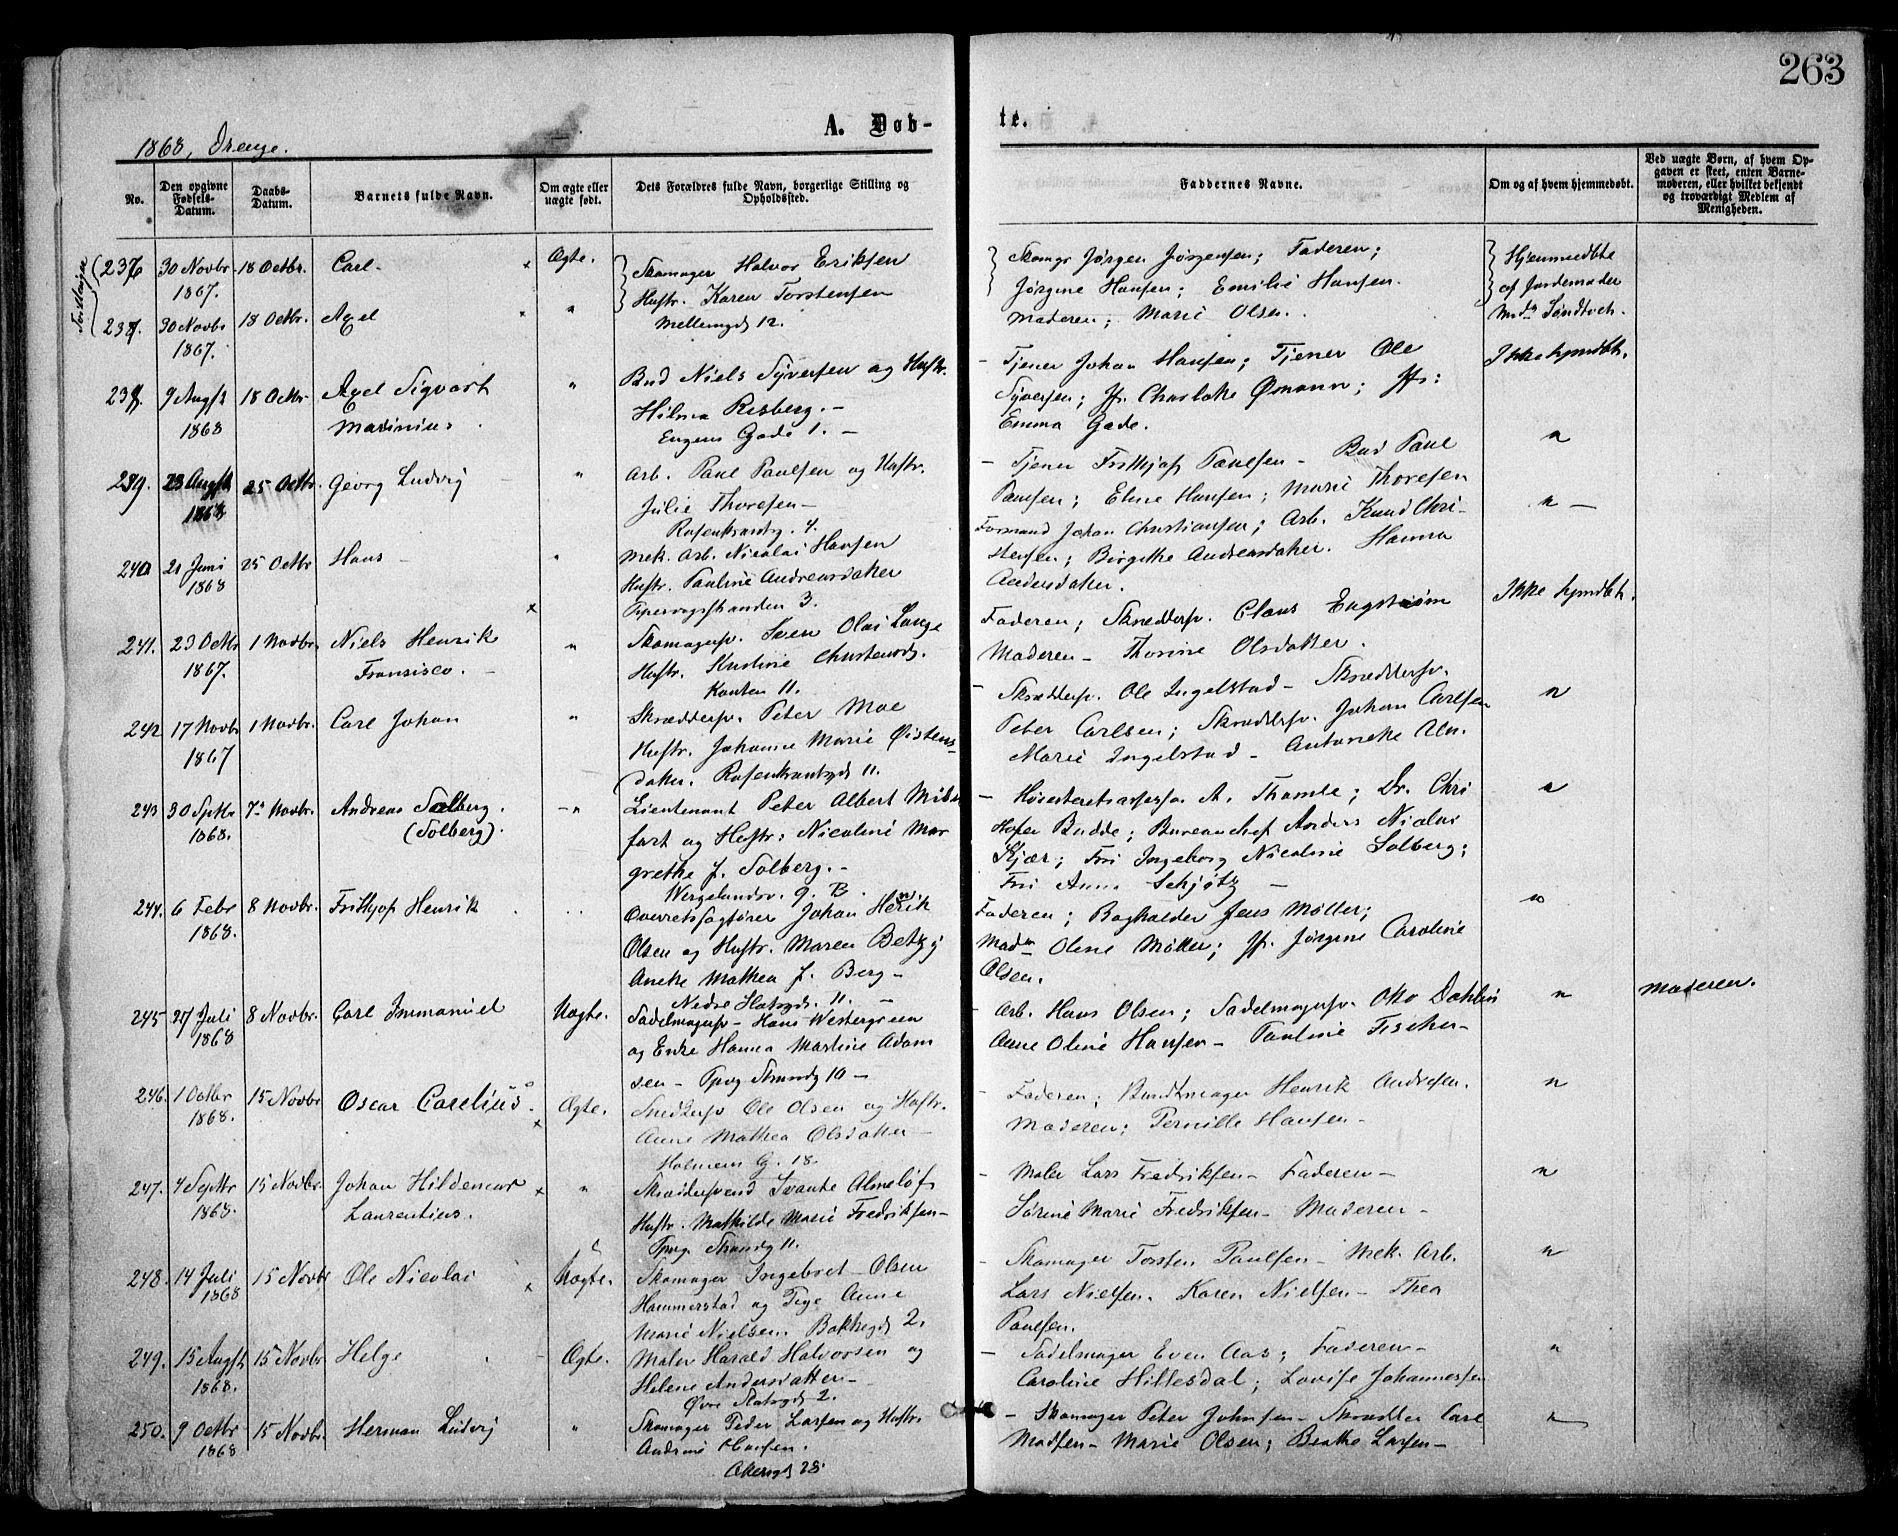 263
A. Døb-
te.
1868, Drenge.
No.
Den opgivne Fødsels-Datum.
Daabs-Datum.
Barnets fulde Navn.
Om ægte eller uægte født.
Dets Forældres fulde Navn, borgerlige Stilling og Opholdssted.
Faddernes Navne.
Om og af hvem hjemmedøbt.
Ved uægte Børn, af hvem Op-
gaven er skeet, enten Barne-
moderen, eller hvilket bekjendt
og troværdigt Medlem af
Menigheden.
Tvillinger
236 30 Novbr. 18 Octbr. Carl - Ægte. Skomager Halvor Eriksen
1867. Hustr. Karen Torstensen
237. 30 Novbr 18 Octbr. Axel " Mellemgd 12.
1867.
Skomgr Jørgen Jørgensen; Faderen;
Jørgine Hansen; Emilie Hansen.
Moderen; Marie Olsen.
Hjemmedøbte
af Jordemoder
238. 9 Augst 18 Octbr Axel Sigvart " Bud Niels Syversen og Hustr.
1868 Marinius. Hilma Risberg. -
Eugens Gade 1. -
- Tjener Johan Hansen; Tjener Ole
Syversen; Jfr. Charlotte Ømann; Jfr:
Emma Gade.
Ikke hjmdbt.
239. 23 Augst 25 Octbr. Georg Ludvig - " Arb. Paul Paulsen og Hustr.
1868 Julie Thoresen -
Rosenkrantzg. 4.
- Tjener Frithjof Paulsen - Bud Paul
Paulsen; Eline Hansen; Marie Thoresen
"
240 21 Juni 25 Octbr Hans - " Mek. Arb. Nicolai Hansen
1868 Hustr. Pauline Andreasdatter
Pipervigsstranden 3.
Formand Johan Christiansen; Arb. Knud Chri-
stensen; Birgitte Andreasdatter. Hanna
Andersdatter.
" -
241. 23 Octbr 1 Novbr. Niels Henrik " Skomagersv. Sven Olai Lange
1867. Fransisco. - Hustr. Kristine Christensd.
Kanten 11.
Faderen; Skreddersv. Claus Engstrøm
Moderen - Thorine Olsdatter.
Ikke hjmdbt.
242 17 Novbr 1 Novbr. Carl Johan " Skræddersv. Peter Moe
1867 Hustr. Johanne Marie Øistens-
datter. Rosenkrantzgd 11.
- Skræddersv. Ole Ingelstad - Skræddersv.
Peter Carlsen; Skræddersv. Johan Carlsen
Marie Ingelstad - Antonette
"
243 30 Septbr 7de Novbr. Andreas Solberg. - " Lieutenant Peter Albert
1868. (Solberg). fart og Hustr: Nicoline Mar
grethe f. Solberg. -
Wergelandsv. 9. B.
- Høiesteretsassessor A. Thomle; Dr. Chri
Hofer Budde; Bureauchef Anders Nicolai
Kjær; Frk Ingeborg Nicoline Solberg;
Frk Anna Schjøtz -
"
244. 6 Febr 8 Novbr. Frithjof Henrik . . . Overretssagfører Johan Henrik
1868. Olsen og Hustr. Maren Betzy
Anette Mathea f. Berg -
Nedre Slotsgd. 11. -
Faderen; Bogholder Jens Møller;
Madm Oline Møller; Jfr. Jørgine Caroline
Olsen.
"
245 27 Juli 8 Novbr. Carl Immanuel Uægte. Sadelmagersv - Hans Westergreen
1868 og Enke Hanna Martine Adam
sen - Ppvg Strandg 10 -
- Arb. Hans Olsen; Sadelmagersv. Otto Dahlin
Anne Oline Hansen - Pauline Fischer -
" Moderen.
246. 1 Octbr 15 Novbr Oscar Carelius. Ægte. Snedkersv Ole Olsen og Hustr.
1868. Anne Mathea Olsdatter -
Holmens G. 18.
- Faderen; Bundtmager Henrik Andresen.
Moderen; Pernille Hansen -
"
247. 4 Septbr 15 Novbr. Johan Hildemar " Skræddersvend Svante Almeløf
1868. Laurentius. Hustr. Mathilde Marie Fredriksen -
Ppvg. Strandg 11.
- Maler Lars Fredriksen - Faderen -
Sørine Marie Fredriksen - Moderen -
"
248. 14 Juli 15 Novbr Ole Nicolai Uægte. Skomager Ingebret Olsen
1868 Hammerstad og Pige Anne
Marie Nielsen. Bakkegd 2.
- Skomager Torsten Paulsen - Mek. Arb.
Lars Nielsen. Karen Nielsen - Thea
Paulsen.
"
249. 15 Augst 15 Novbr Helge - Ægte. Maler Harald Halvorsen og
1868. Helene Andersdatter -
Øvre Slotsgd 2.
- Sadelmager Even Aas; Faderen -
Caroline Hillesdal; Lovise Johannessen
"
250. 9 Octbr 15 Novbr. Herman Ludvig " Skomager Peder Larsen og Hustr.
1868 Andrine Hansen.
Akersgd 28.
- Skomager Peter Johnsen - Skrædder Carl
Madsen - Marie Olsen; Beathe Larsen -
"